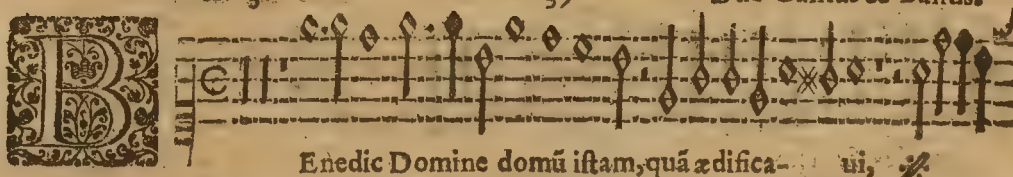 B
Enedic Domine domū iſtam, quā ædifica- ui, ij.